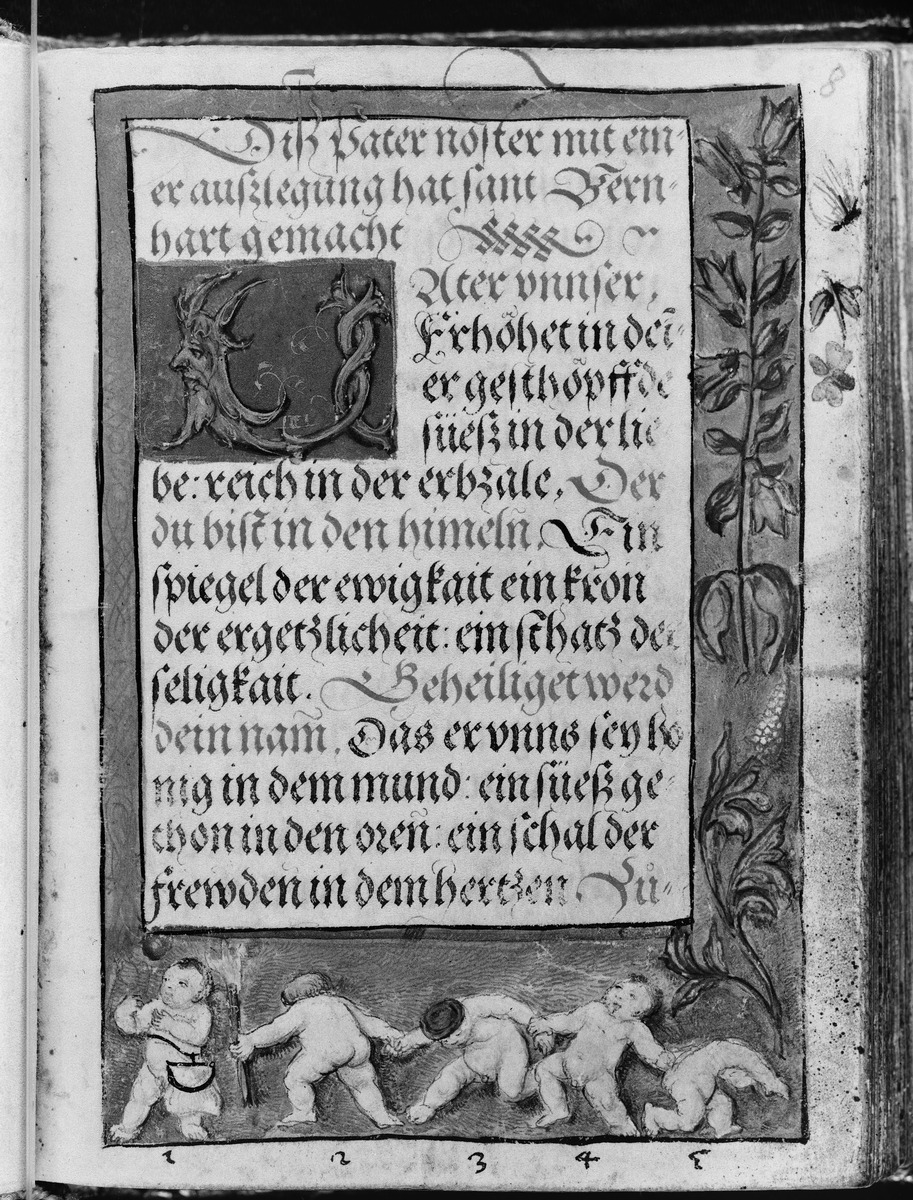 8
Diß Pater noster mit ein-
er auszlegung hat sant Bern-
hart gemacht
VAter vnnser,
Erhöhet in dei-
er geschöpff de
süesz in der lie
be: reich in der erbzale, Der
du bist in den himeln̄. Ein
spiegel der ewigkait ein kron
der ergetzlicheit: ein schatz der
seligkait. Geheiliget werd
dein nam̄. Das er vnns sey ho
nig in dem mund: ein süesz ge-
thon in den oren̄: ein schal der
frewden in dem hertzen Zů-
1 2 3 4 5